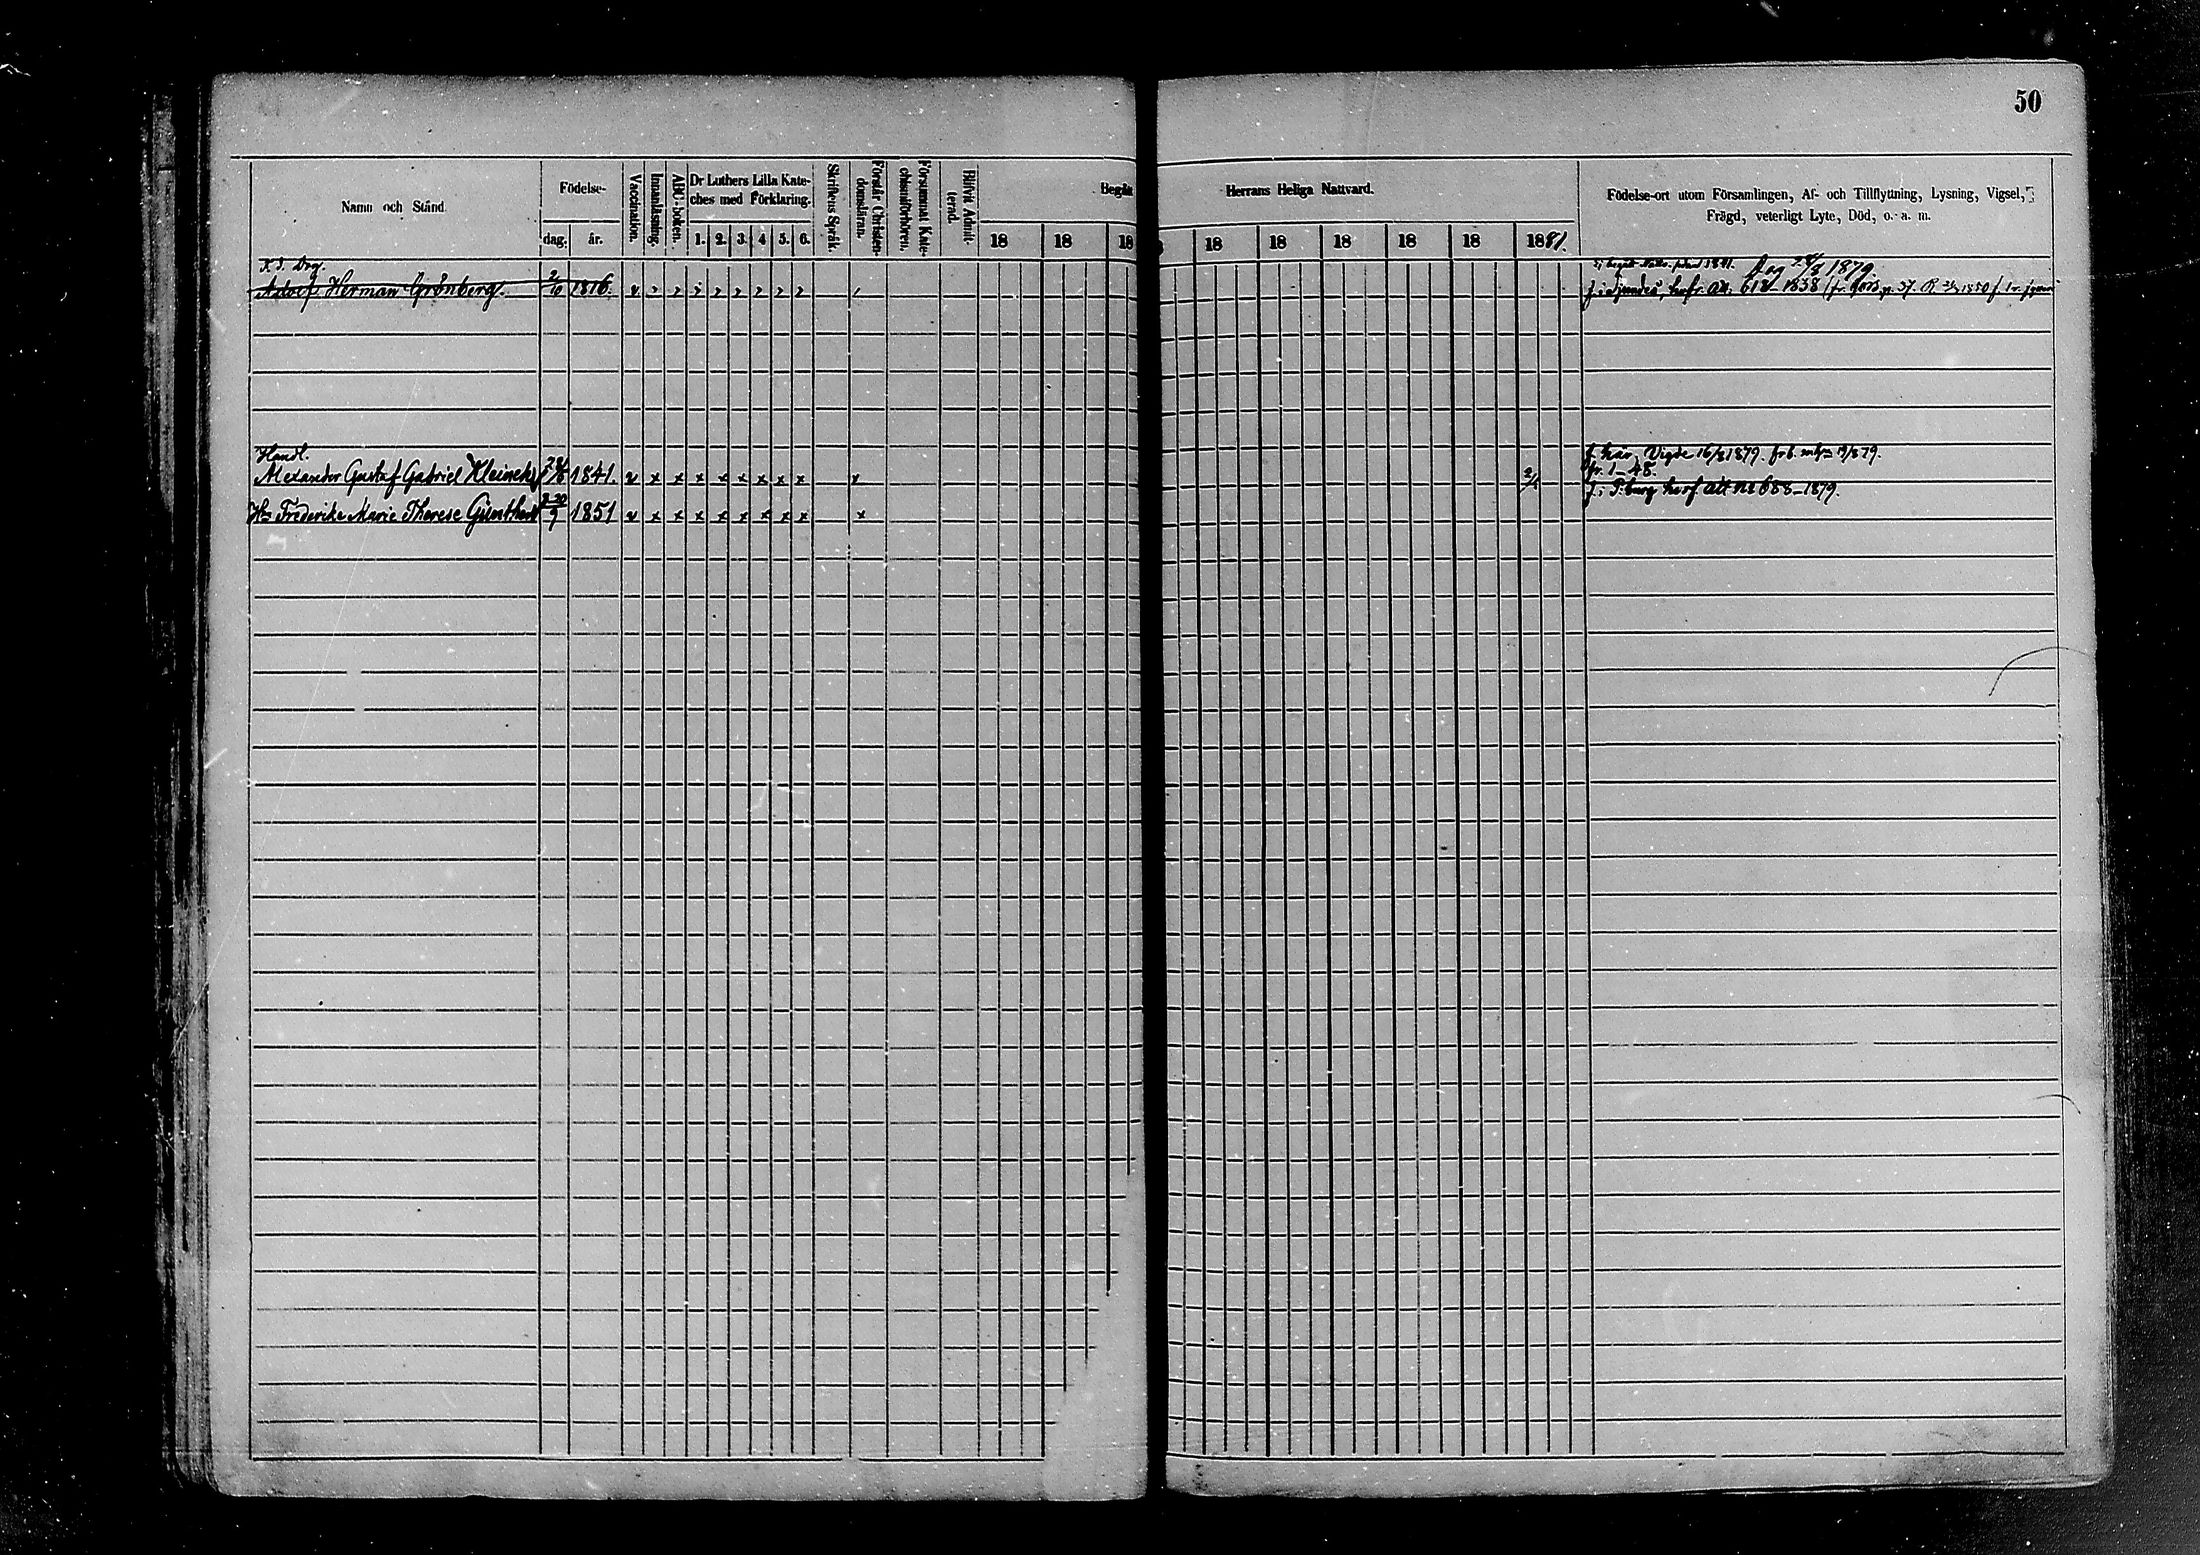 50
Namn och Stånd.
Födelse-
dag. år.
Vaccination.
Innanläsning.
ABC-boken.
Dr Luthers Lilla Kate-
ches med Förklaring.
1. 2. 3. 4 5. 6.
Skriftens Språk.
Förstår Christen-
domsläran.
Försummat Kate-
chismiförhören.
Blifvit Admit-
terad.
Begått
Herrans Heliga Nattvard.
18 18 18 18 18 18 18 18 1881.
Födelse-ort utom Församlingen, Af- och Tillflyttning, Lysning, Vigsel,
Frägd, veterligt Lyte, Död, o. a. m.
Adolf Herman Grönberg. 1816.
Dog 1879.
618 1838
Handl.
Alexander Gustaf Gabriel 1841. v x x x x x x x x x
f. här. Vigde 16/8 1879. 19/8 79.
fr. 1-48.
Frederike Marie Therese Günther 1851 v x x x x x x x x x
f. i P:burg att no 688-1879.